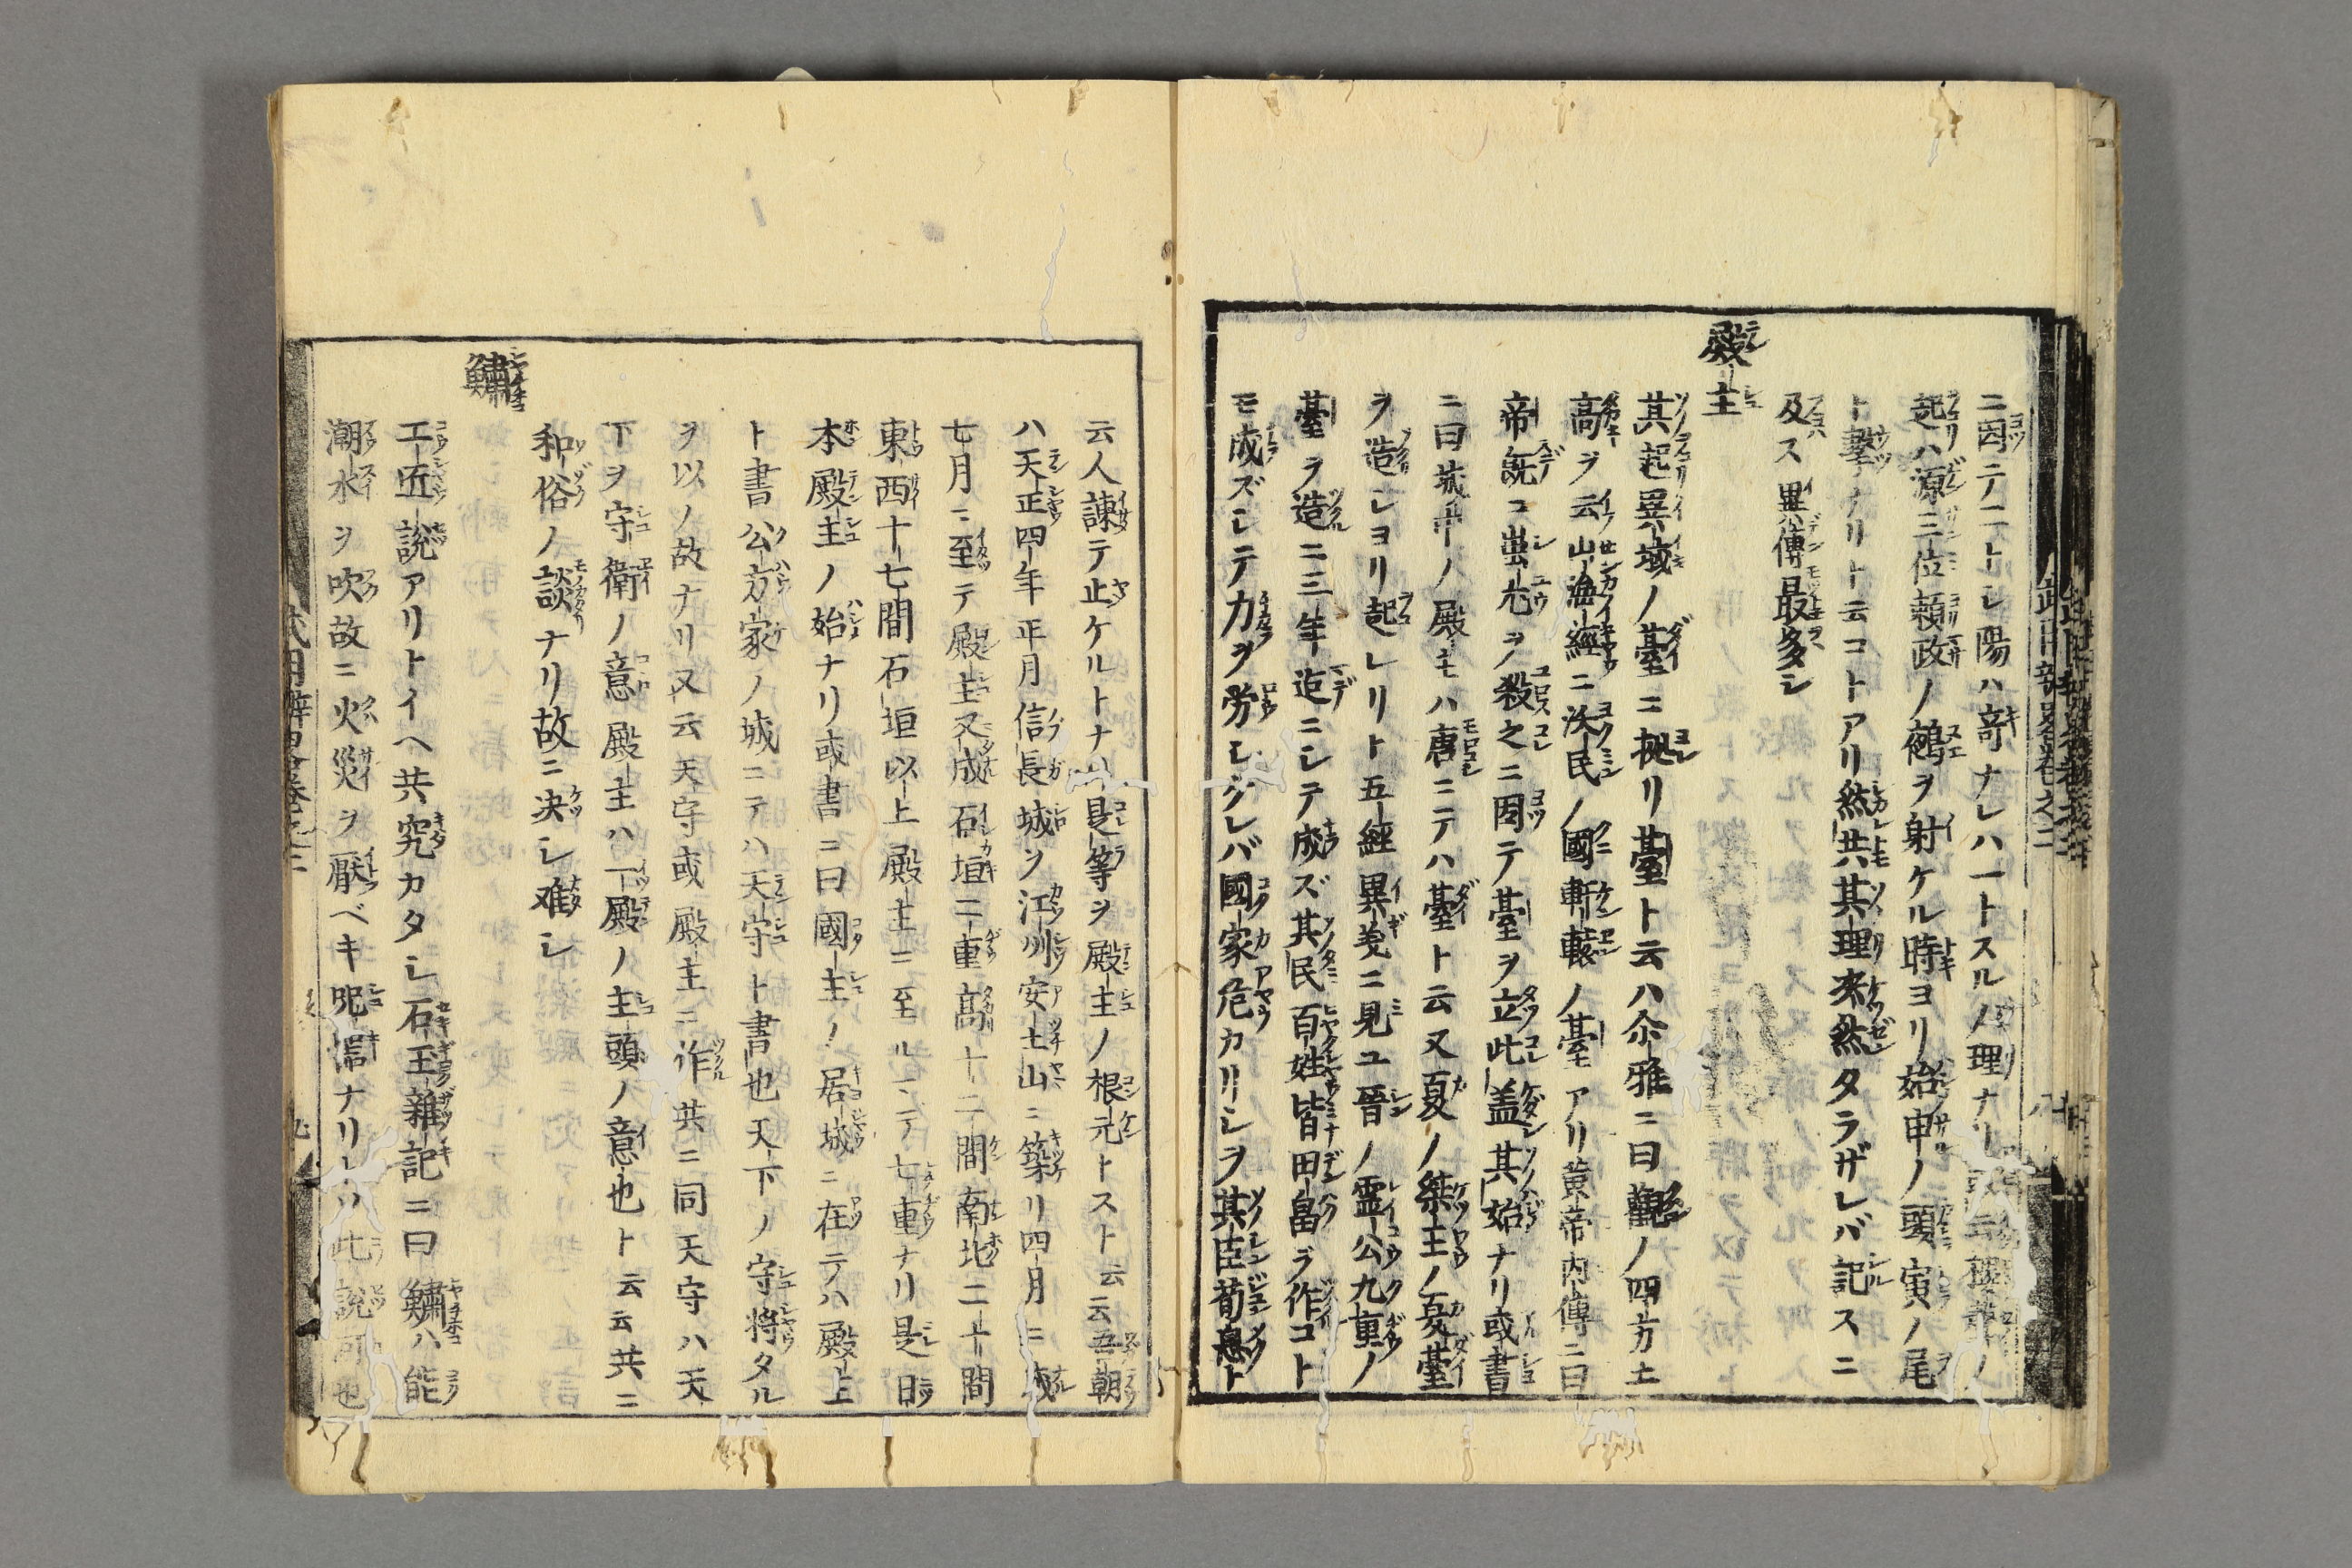 ニ因テ二トシ陽ハ竒ナレハ一トスルノ理ナリ
起ハ源三位頼政ノ鵺ヲ射ケル時ヨリ始申ノ頭寅ノ尾
トナリト云コトアリ然共其理來然タラザレバ記スニ
及ス異傳最多シ
殿主
其起異域ノ臺ニ拠リ臺ト云ハ尒雅ニ曰觀ノ四方土
高ヲ云山海經ニ沃民ノ國軒轅ノ臺アリ黄帝内傳ニ曰
帝既ニ蚩尤ヲ殺之ニ因テ臺ヲ立此盖其始ナリ或書
ニ曰城中ノ殿モハ唐ニテハ臺ト云又夏ノ桀王ノ夏臺
ヲ造シヨリ起レリト五經異義ニ見ユ晉ノ霊公九重ノ
臺ヲ造ニ三年迄ニシテ成ズ其民百姓皆田畠ヲ作コト
モ成ズシテ力ヲ労シケレバ國家危カリシヲ其臣荀息ト
云人諌テ止ケルトナリ是等ヲ殿主ノ根元トスト云云吾朝
ハ天正四年正月信長城ヲ江州安土山ニ築リ四月ニ
七月ニ至テ殿主又成石垣二重髙十二間南北二十間
東西十七間石垣以上殿主ニ至ルニテ七重ナリ是日
本殿主ノ始ナリ或書ニ曰國主ノ居城ニ在テハ殿上
ト書公方家ノ城ニテハ天守ト書也天下ノ守将タル
ヲ以ノ故ナリ又云天守或殿主ニ作共ニ同天守ハ天
下ヲ守衛ノ意殿主ハ一殿ノ主頭ノ意也ト云云共ニ
和俗ノ談ナリ故ニ决シ难シ
鱐
工匠説アリトイヘ共究カタシ石玉雜記ニ曰鱐ハ能
潮水ヲ吹故ニ火災ヲ厭ベキ呪ナリ此説可也